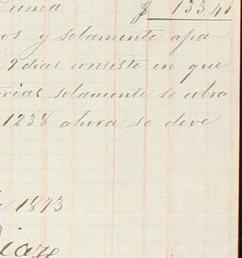 Suma $ 133.40
os y solamente apa
9 dias consiste en que
orias solamente se obra
1238 ahora se deve
1873
Diaz